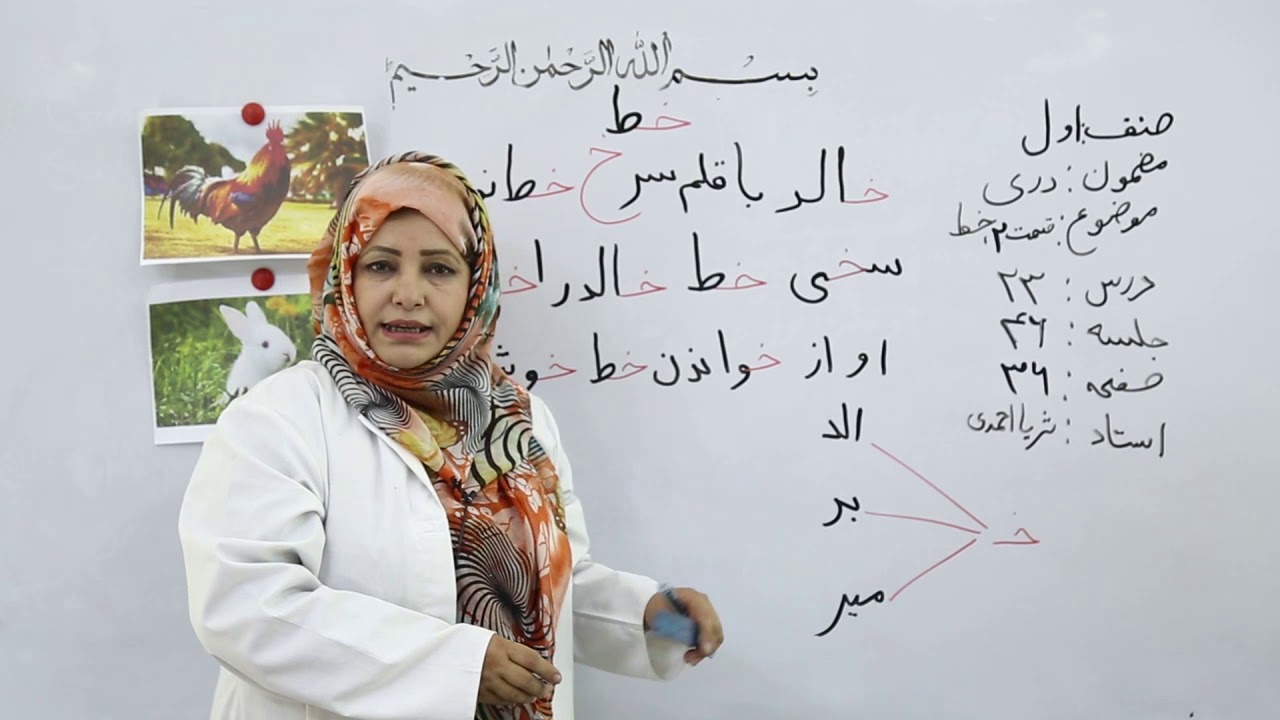 بِسْمِ اللهِ الرَّحْمٰنِ الرَّحِيمِ
خط
خالد با قلم سرخ خط
سخی خط خالد را
او از خواندن خط
الد
بر
میر
خـ
صنف: اول
مضمون: دری
موضوع: قسمت ۲، خط
درس: ۲۳
جلسه: ۴۶
صفحه: ۳۶
استاد: ثریا احمدی